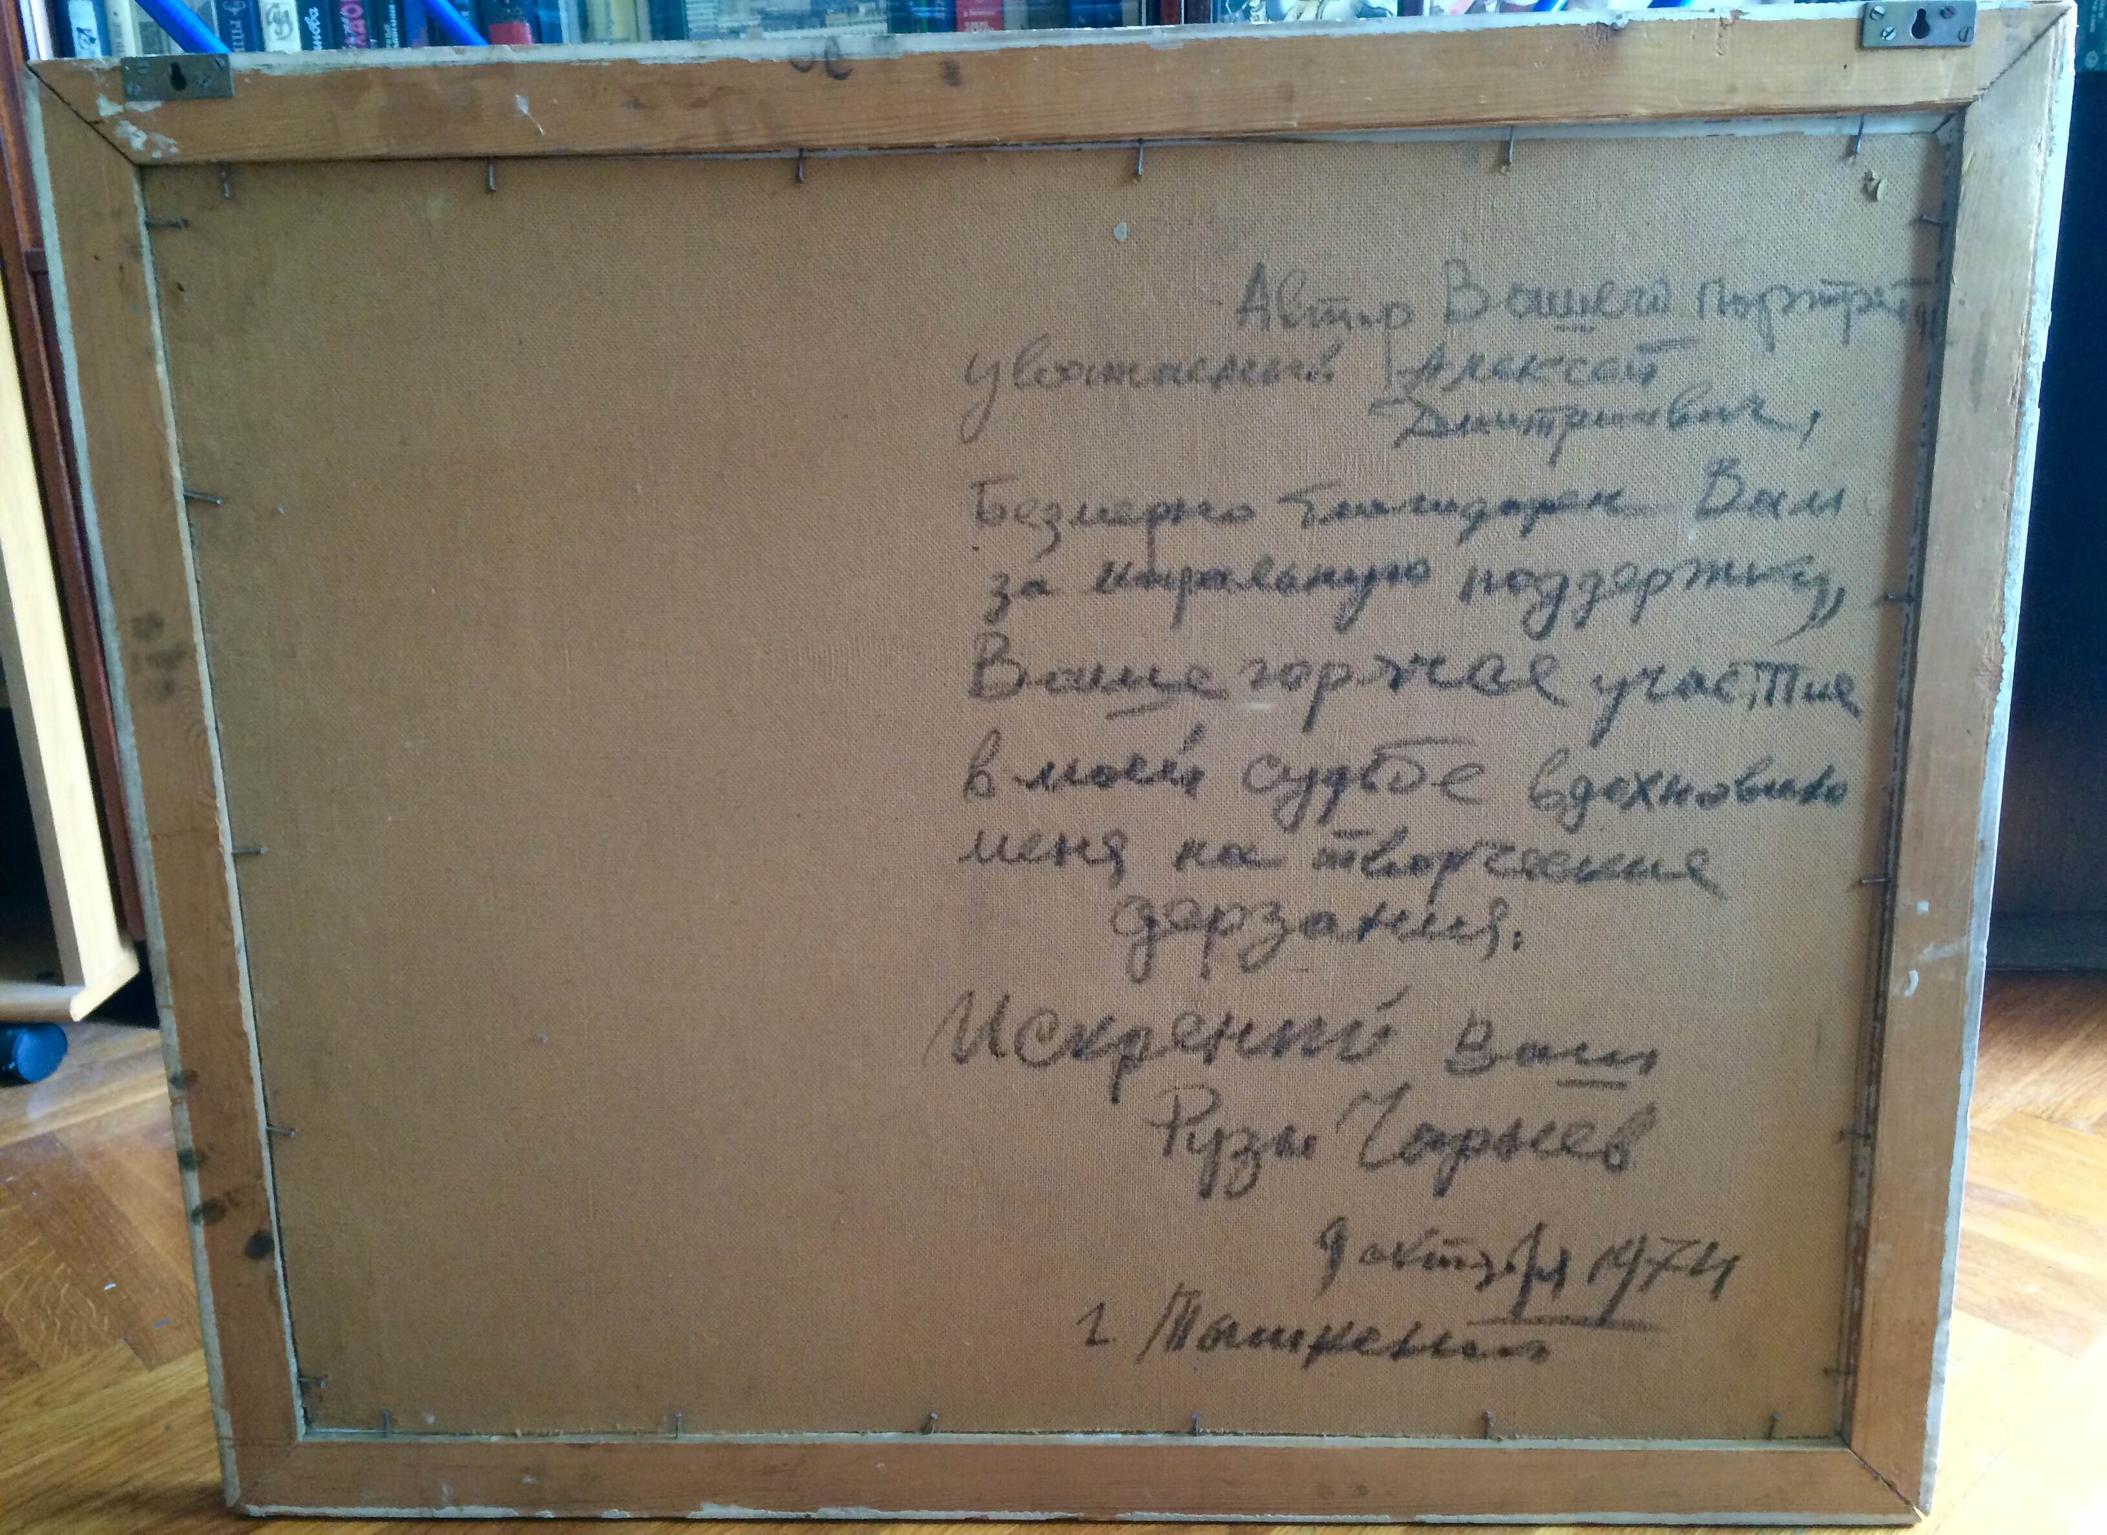 Автор Вашего портрета
уважаемый Алексей
Дмитриевич,
Безмерно благодарен Вам
за моральную поддержку,
Ваше горячее участие
в моей судьбе вдохновило
меня на творческие
дерзания.
Искренний Ваш
Рузы Чарыев
9 октября 1974
г. Ташкент